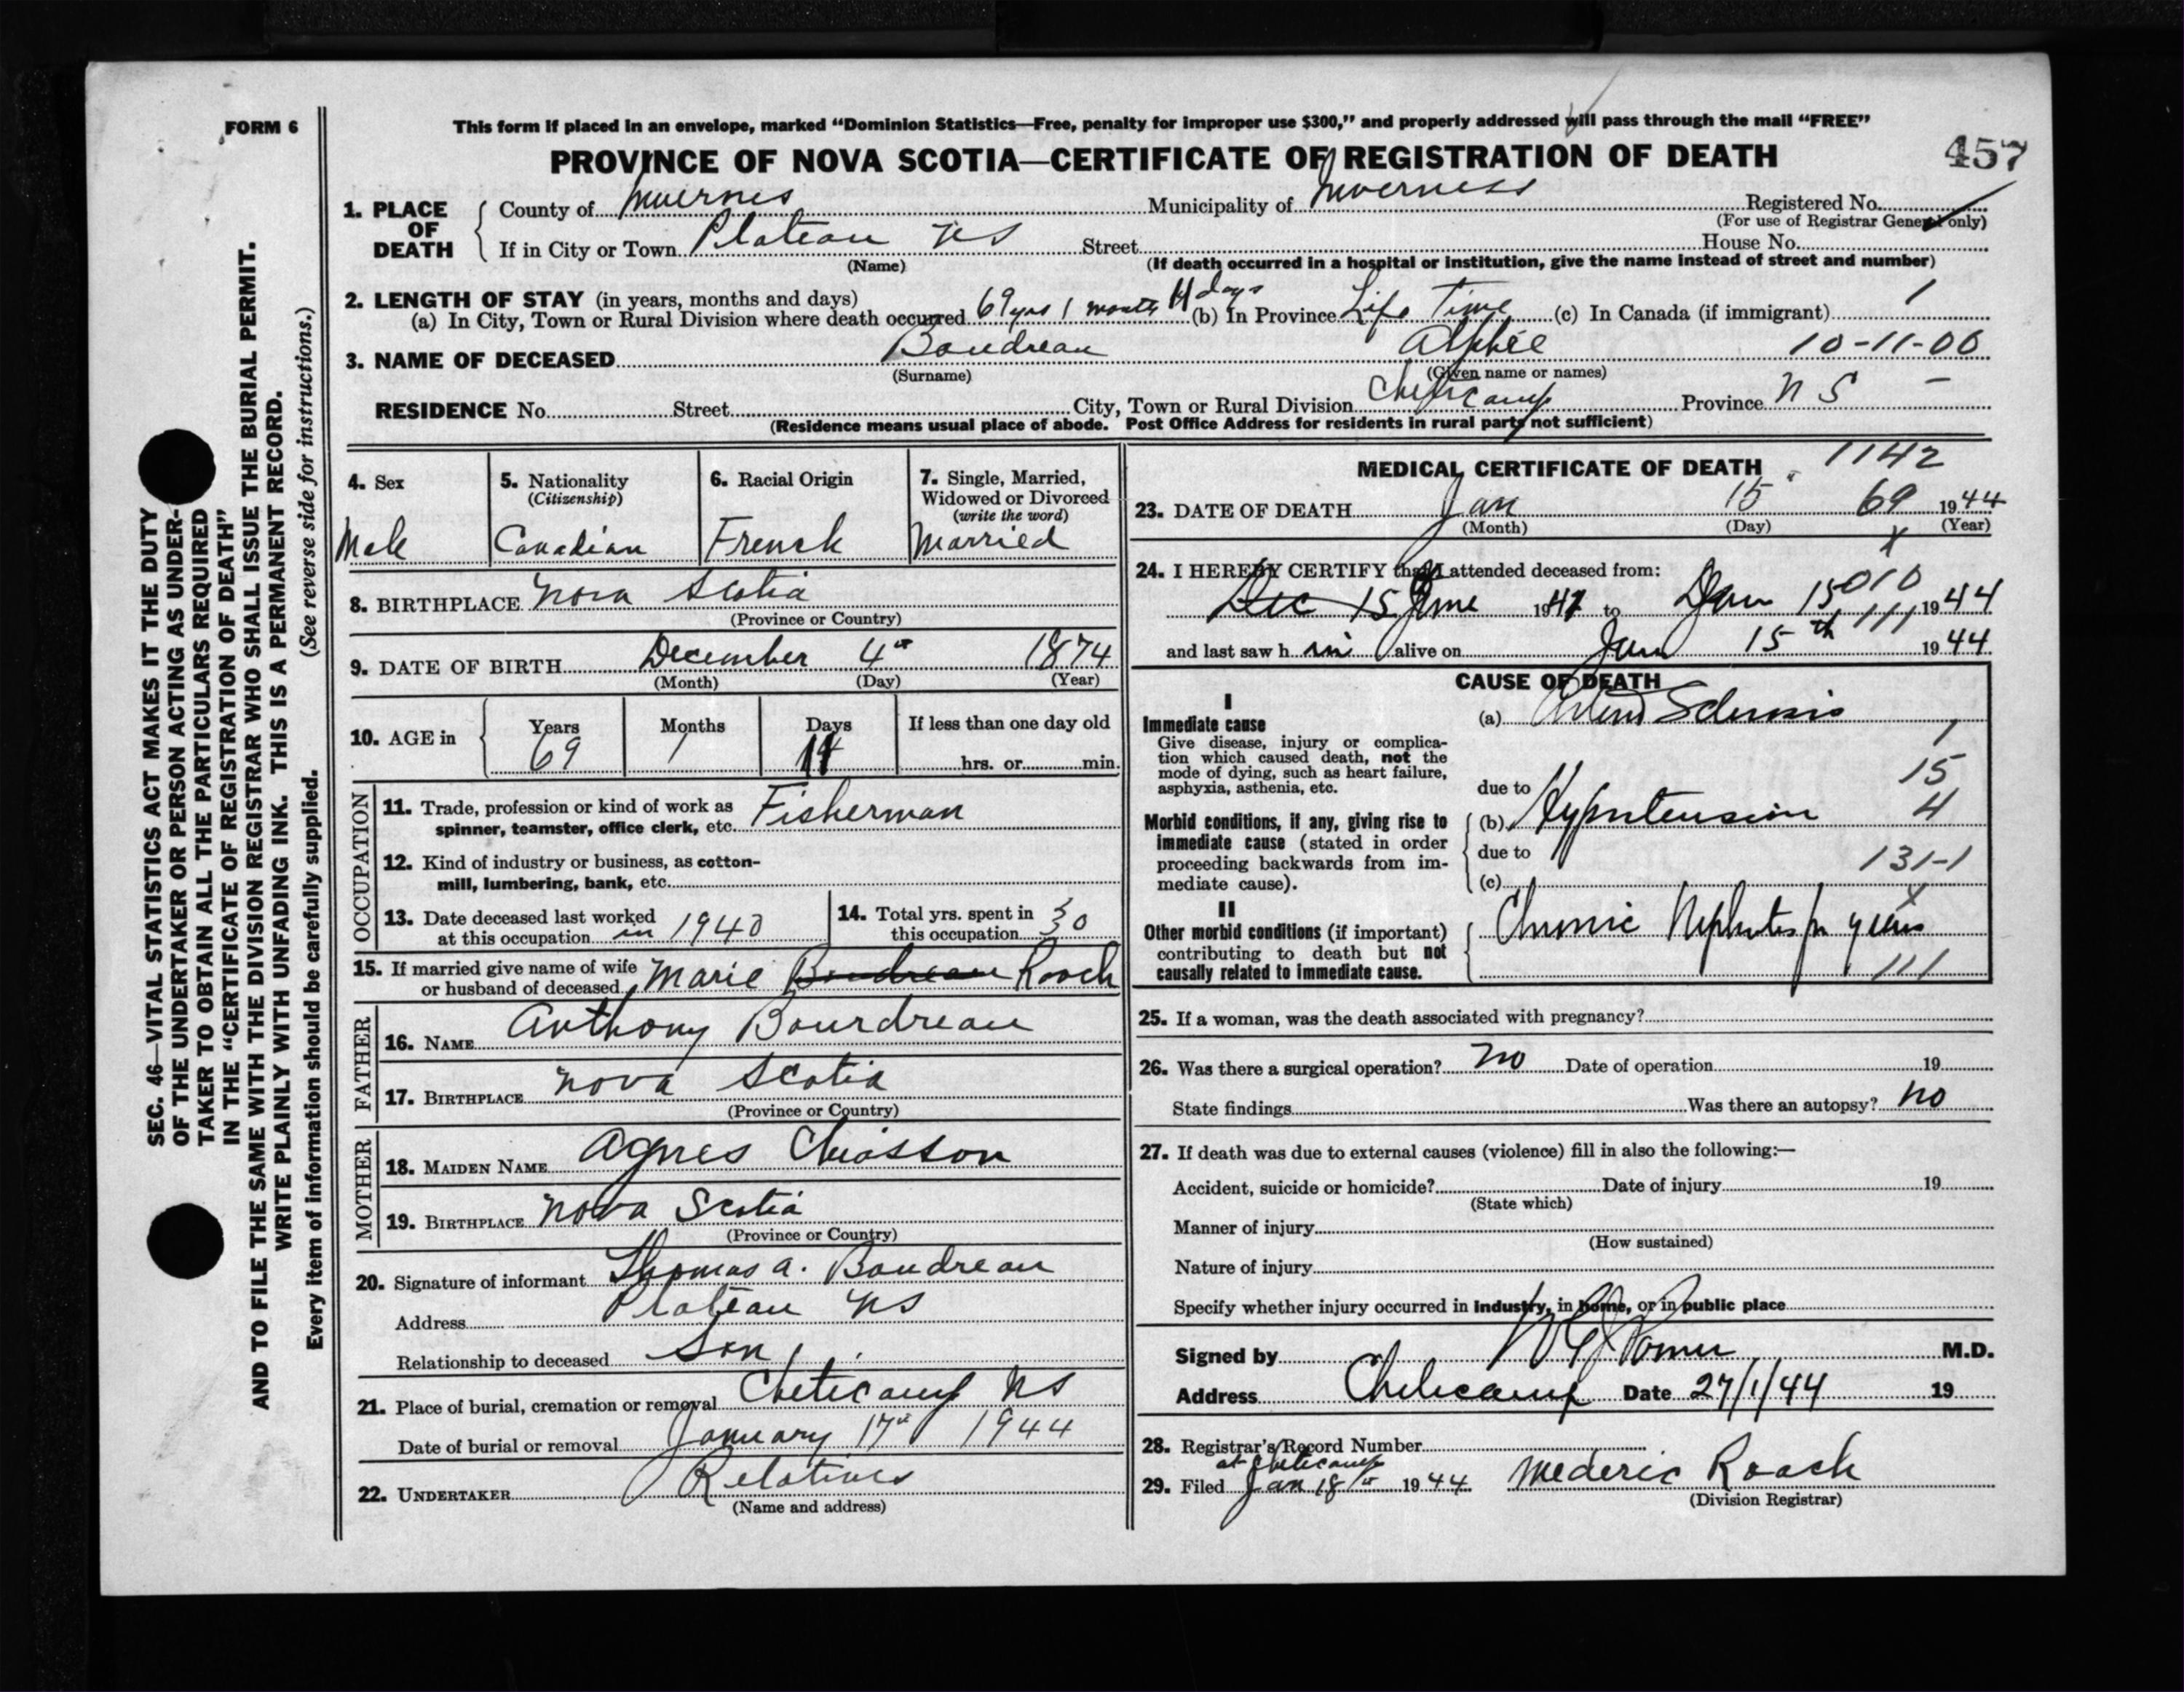 FORM 6
This form if placed in an envelope, marked "Dominion Statistics—Free, penalty for improper use $300," and properly addressed will pass through the mail "FREE"
PROVINCE OF NOVA SCOTIA—CERTIFICATE OF REGISTRATION OF DEATH
457
1. PLACE OF DEATH
County of Inverness Municipality of Inverness Registered No.
(For use of Registrar General only)
If in City or Town Plateau NS Street House No.
(Name) (If death occurred in a hospital or institution, give the name instead of street and number)
2. LENGTH OF STAY (in years, months and days)
(a) In City, Town or Rural Division where death occurred 69 yrs 1 month 11 days (b) In Province Life Time (c) In Canada (if immigrant) 1
3. NAME OF DECEASED Boudreau Alphée 10-11-06
(Surname) (Given name or names)
RESIDENCE No. Street City, Town or Rural Division Cheticamp Province N S –
(Residence means usual place of abode. Post Office Address for residents in rural parts not sufficient)
4. Sex
Male
5. Nationality
(Citizenship)
Canadian
6. Racial Origin
French
7. Single, Married,
Widowed or Divorced
(write the word)
Married
8. BIRTHPLACE Nova Scotia
(Province or Country)
9. DATE OF BIRTH December 4th 1874
(Month) (Day) (Year)
10. AGE in
Years Months Days If less than one day old
69 1 11 hrs. or min.
OCCUPATION
11. Trade, profession or kind of work as
spinner, teamster, office clerk, etc. Fisherman
12. Kind of industry or business, as cotton-
mill, lumbering, bank, etc.
13. Date deceased last worked
at this occupation in 1940
14. Total yrs. spent in
this occupation 30
15. If married give name of wife
or husband of deceased Marie Boudreau Roach
FATHER
16. NAME Anthony Bourdreau
17. BIRTHPLACE Nova Scotia
(Province or Country)
MOTHER
18. MAIDEN NAME Agnes Chiasson
19. BIRTHPLACE Nova Scotia
(Province or Country)
20. Signature of informant Thomas A. Boudreau
Address Plateau NS
Relationship to deceased Son
21. Place of burial, cremation or removal Cheticamp NS
Date of burial or removal January 17th 1944
22. UNDERTAKER Relatives
(Name and address)
MEDICAL CERTIFICATE OF DEATH 1142
23. DATE OF DEATH Jan 15 69 1944
(Month) (Day) (Year)
x
24. I HEREBY CERTIFY that I attended deceased from:
010
Dec 15 June 1941 to Jan 15 1944
111
and last saw h im alive on Jan 15th 1944
CAUSE OF DEATH
I
Immediate cause
Give disease, injury or complica-
tion which caused death, not the
mode of dying, such as heart failure,
asphyxia, asthenia, etc.
(a) Arterio Sclerosis
1
15
due to
Morbid conditions, if any, giving rise to
immediate cause (stated in order
proceeding backwards from im-
mediate cause).
(b) Hypertension 4
due to
131-1
(c)
x
II
Other morbid conditions (if important)
contributing to death but not
causally related to immediate cause.
Chronic Nephritis for years
111
25. If a woman, was the death associated with pregnancy?
26. Was there a surgical operation? No Date of operation 19
State findings Was there an autopsy? No
27. If death was due to external causes (violence) fill in also the following:—
Accident, suicide or homicide? Date of injury 19
(State which)
Manner of injury
(How sustained)
Nature of injury
Specify whether injury occurred in industry, in home, or in public place
Signed by M.D.
Address Cheticamp Date 27/1/44 19
28. Registrar's Record Number
at Cheticamp
29. Filed Jan 18th 1944 Mederic Roach
(Division Registrar)
SEC. 46—VITAL STATISTICS ACT MAKES IT THE DUTY
OF THE UNDERTAKER OR PERSON ACTING AS UNDER-
TAKER TO OBTAIN ALL THE PARTICULARS REQUIRED
IN THE "CERTIFICATE OF REGISTRATION OF DEATH"
AND TO FILE THE SAME WITH THE DIVISION REGISTRAR WHO SHALL ISSUE THE BURIAL PERMIT.
WRITE PLAINLY WITH UNFADING INK. THIS IS A PERMANENT RECORD.
Every item of information should be carefully supplied. (See reverse side for instructions.)